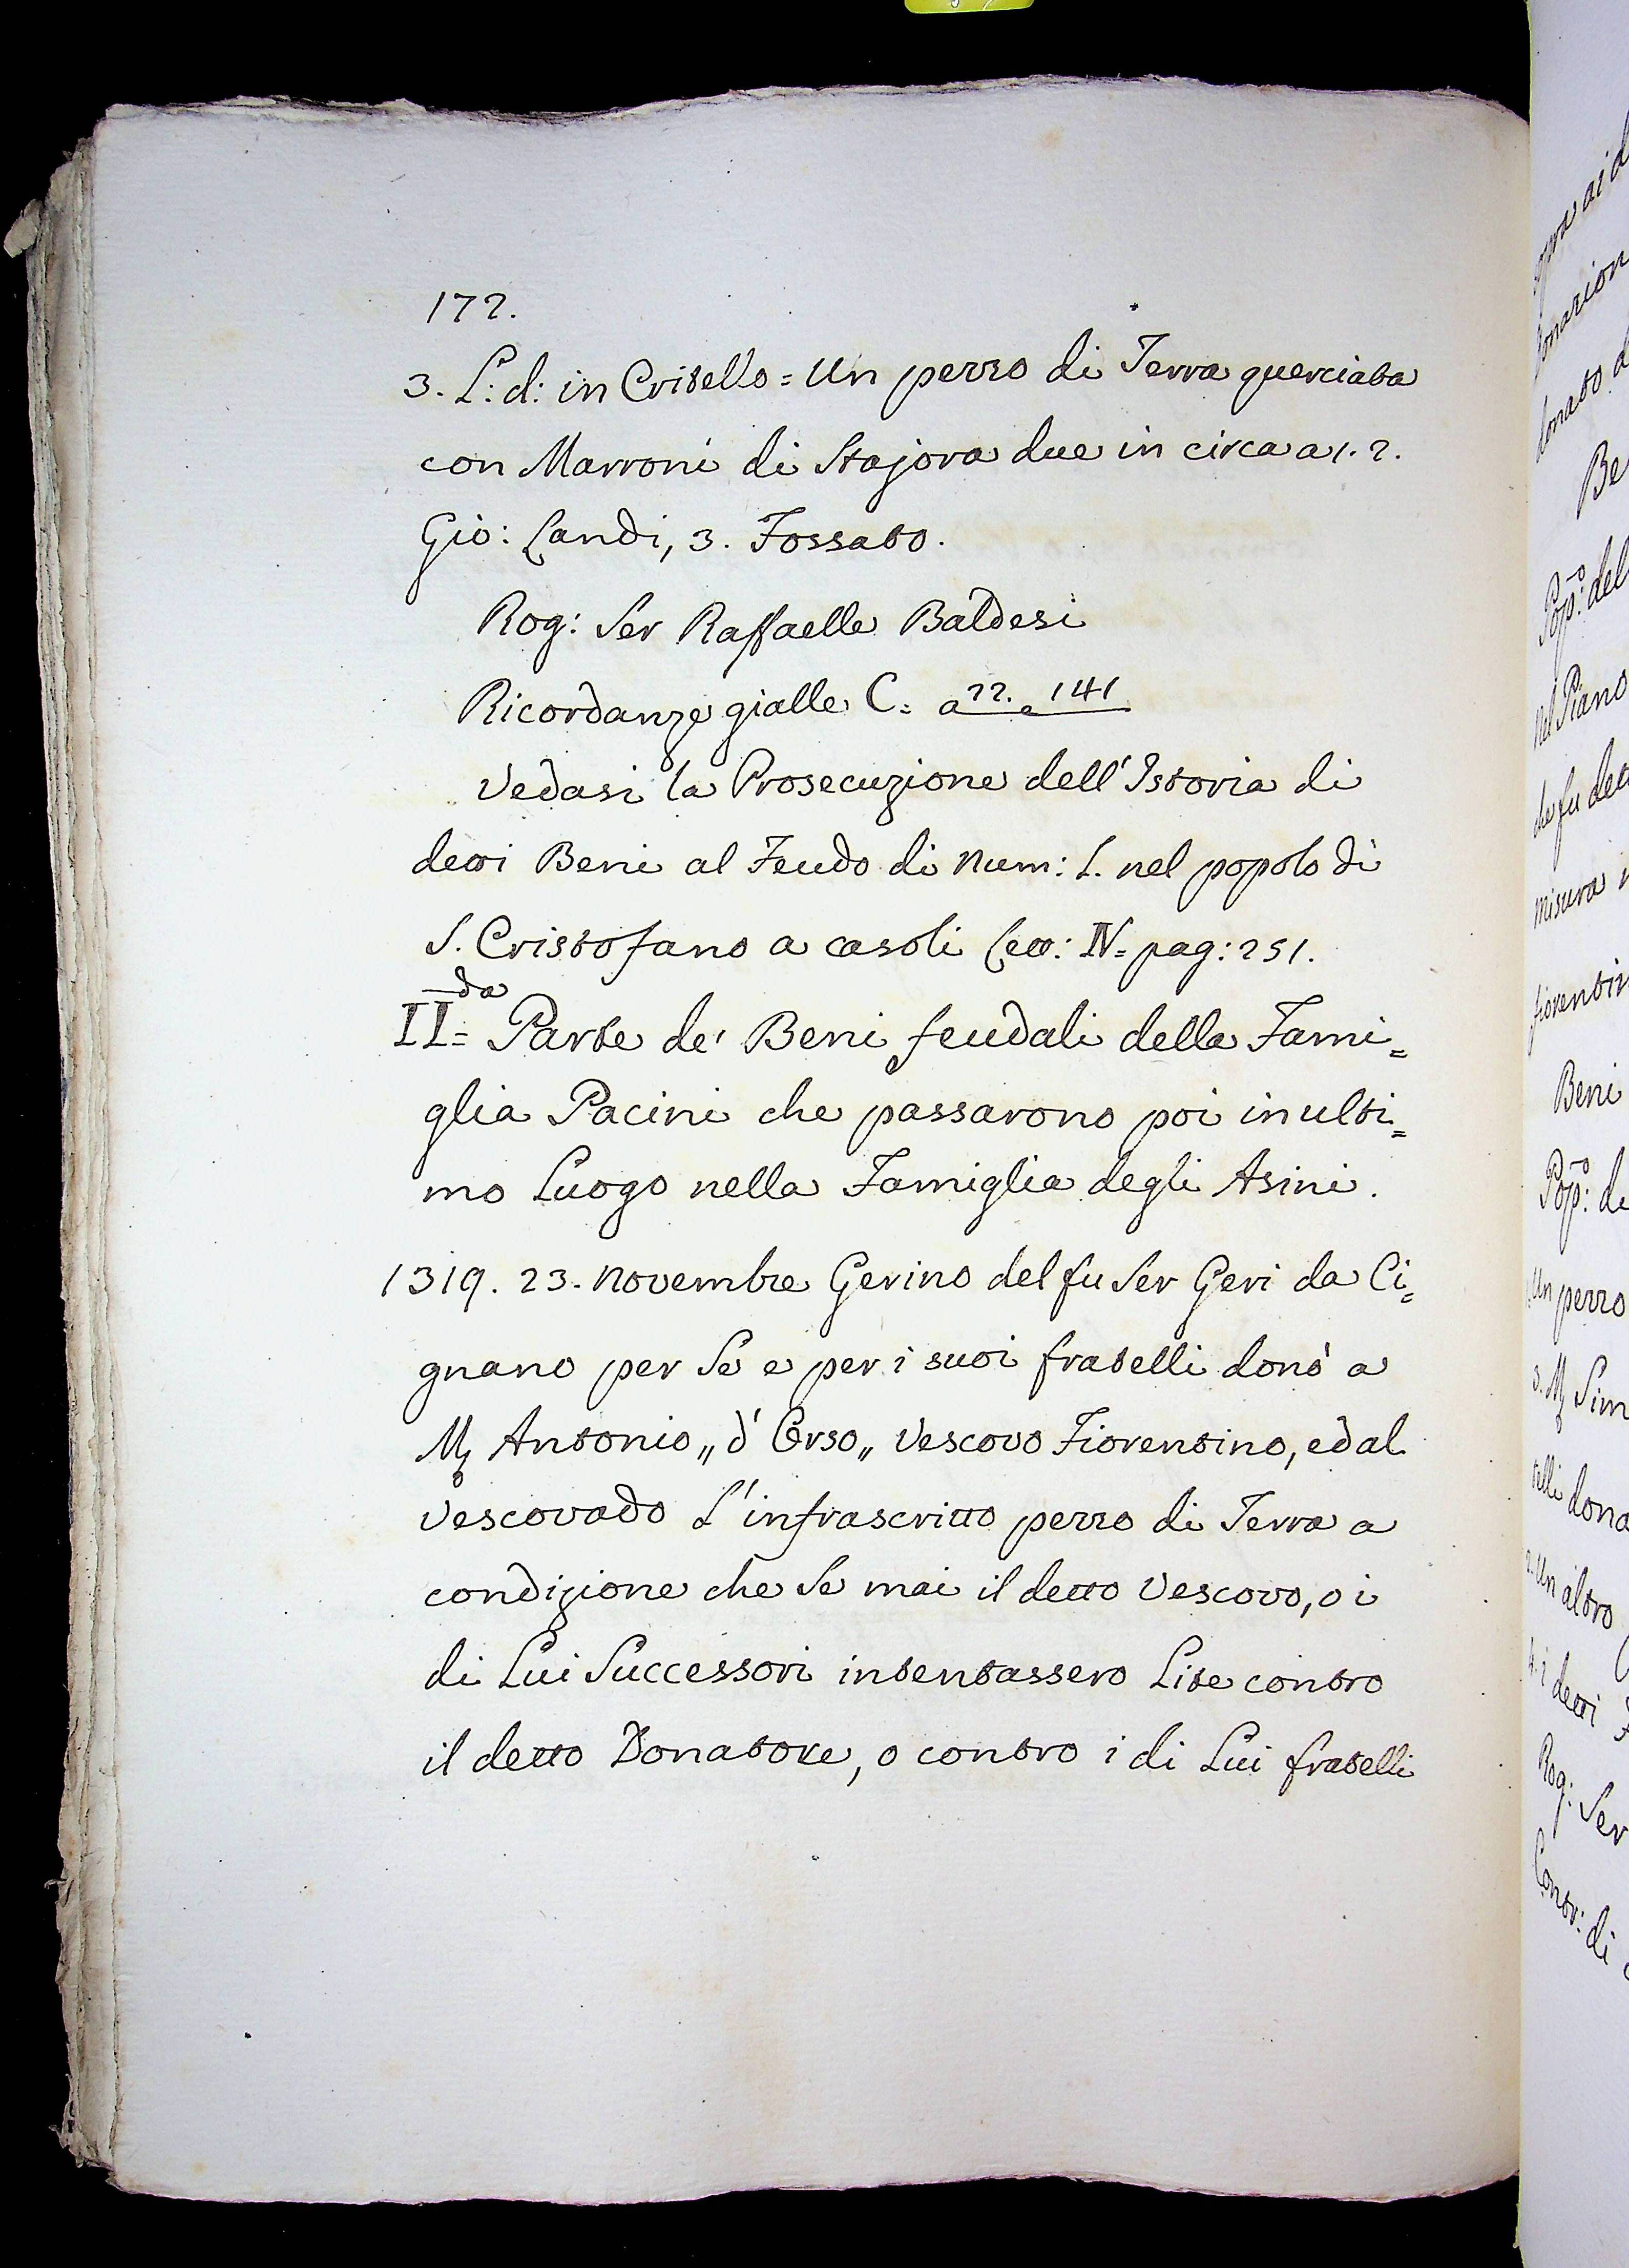 172.
3. L: d: in Critello = Un pezzo di Terra querciata
con Marroni di Stajora due in circa a 1. 2.
Gio: Landi, 3. Fossato.
Rog: Ser Raffaelle Baldesi
Ricordanze gialle C= a 22. e 141
Vedasi la Prosecuzione dell'Istoria di
detti Beni al Feudo di Num: L. nel popolo di
S. Cristofano a casoli Lett: IV= pag: 251.
II=da Parte de' Beni feudali della Fami=
glia Pacini che passarono poi in ulti=
mo Luogo nella Famiglia degli Asini.
1319. 23. Novembre Gerino del fu Ser Geri da Ci=
gnano per Se e per i suoi fratelli donò a
Mg Antonio „ d'Orso „ Vescovo Fiorentino, ed al
Vescovado L'infrascritto pezzo di Terra a
condizione che Se mai il detto Vescovo, o i
di Lui Successori intentassero Lite contro
il detto Donatore, o contro i di Lui fratelli
donato d
Be
Pop:o del
Nel Piano
che fu dett
misura
fiorentin
Beni
Pop:o de
Un pezzo
3. Mg Sim
telli dona
2. Un altro
4. i detti
Rog: Ser
Contr: di